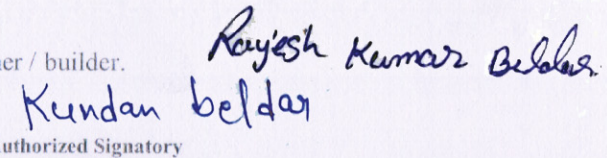 ner / builder. Rajesh Kumar Beldar
Kundan beldar
uthorized Signatory